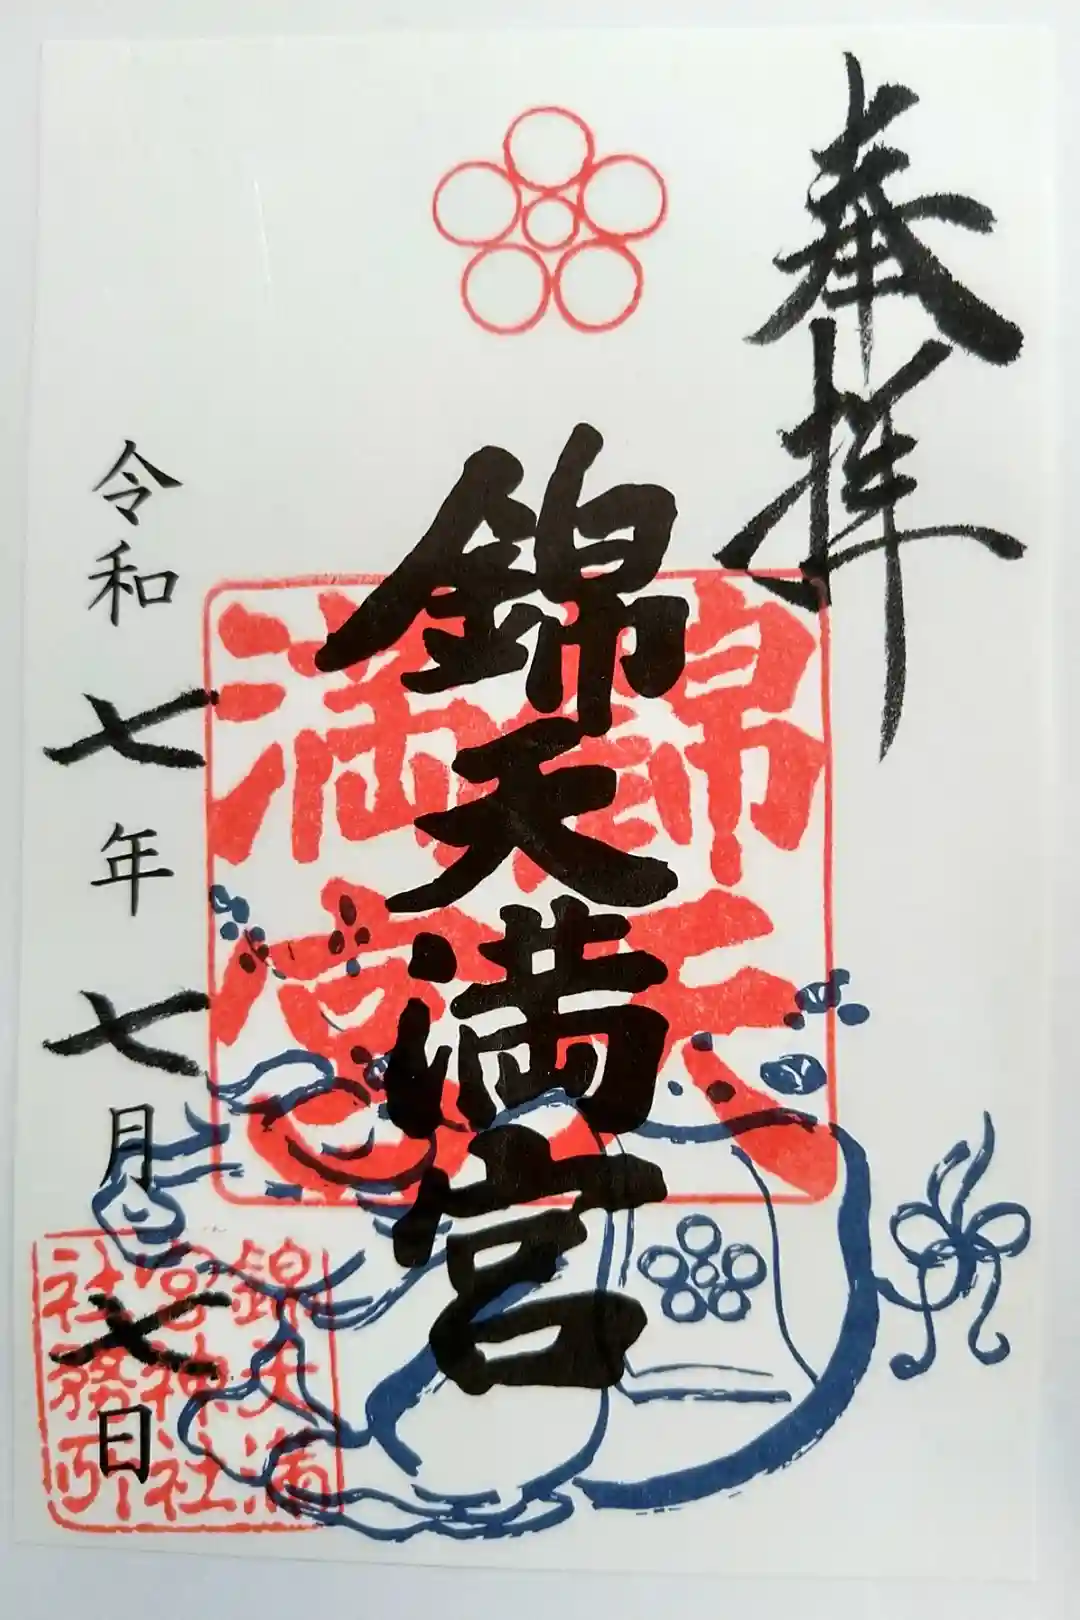 奉拝
錦天満宮
錦天
満宮
令和七年七月七日
錦天満
宮神社
社務所